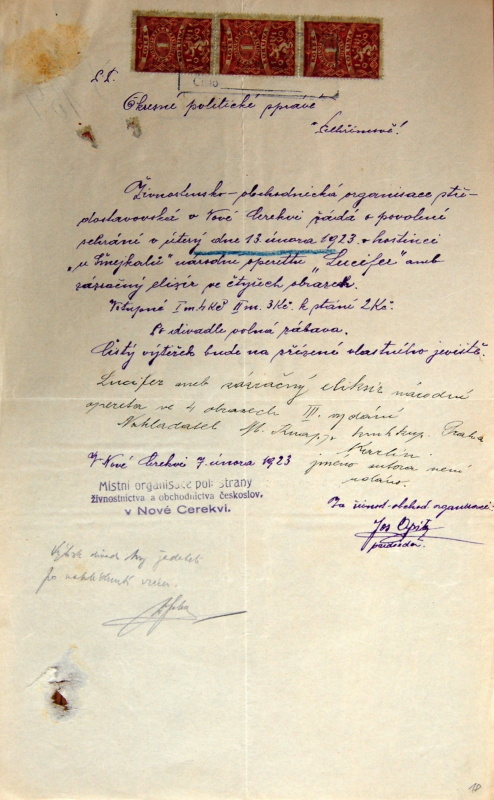 Sl.
Číslo
Okresní politické správě
v Pelhřimově!
Živnostensko-obchodnická organisace stře-
dostavovská v Nové Cerekvi žádá o povolení
sehrání v úterý dne 13. února 1923 v hostinci
"u Šnejkalů" národní operettu "Lucifer" aneb
zázračný elixír ve čtyřech obrazech.
Vstupné I m. 4 Kč II m. 3 Kč. k stání 2 Kč.
Po divadle volná zábava.
Čistý výtěžek bude na zřízení vlastního jeviště.
Lucifer aneb zázračný eliksír národní
opereta ve 4 obrazech III. vydání
Nakladatel M. Knapp knihkup. Praha
Karlín.
jméno autora není
udáno.
V Nové Cerekvi 7. února 1923
Místní organisace pol. strany
živnostnictva a obchodnictva českoslov.
v Nové Cerekvi.
Za živnost-obchod organisaci:
Jos Opitz
předseda.
Výtisk
Po nahlédnutí vrácen.
18